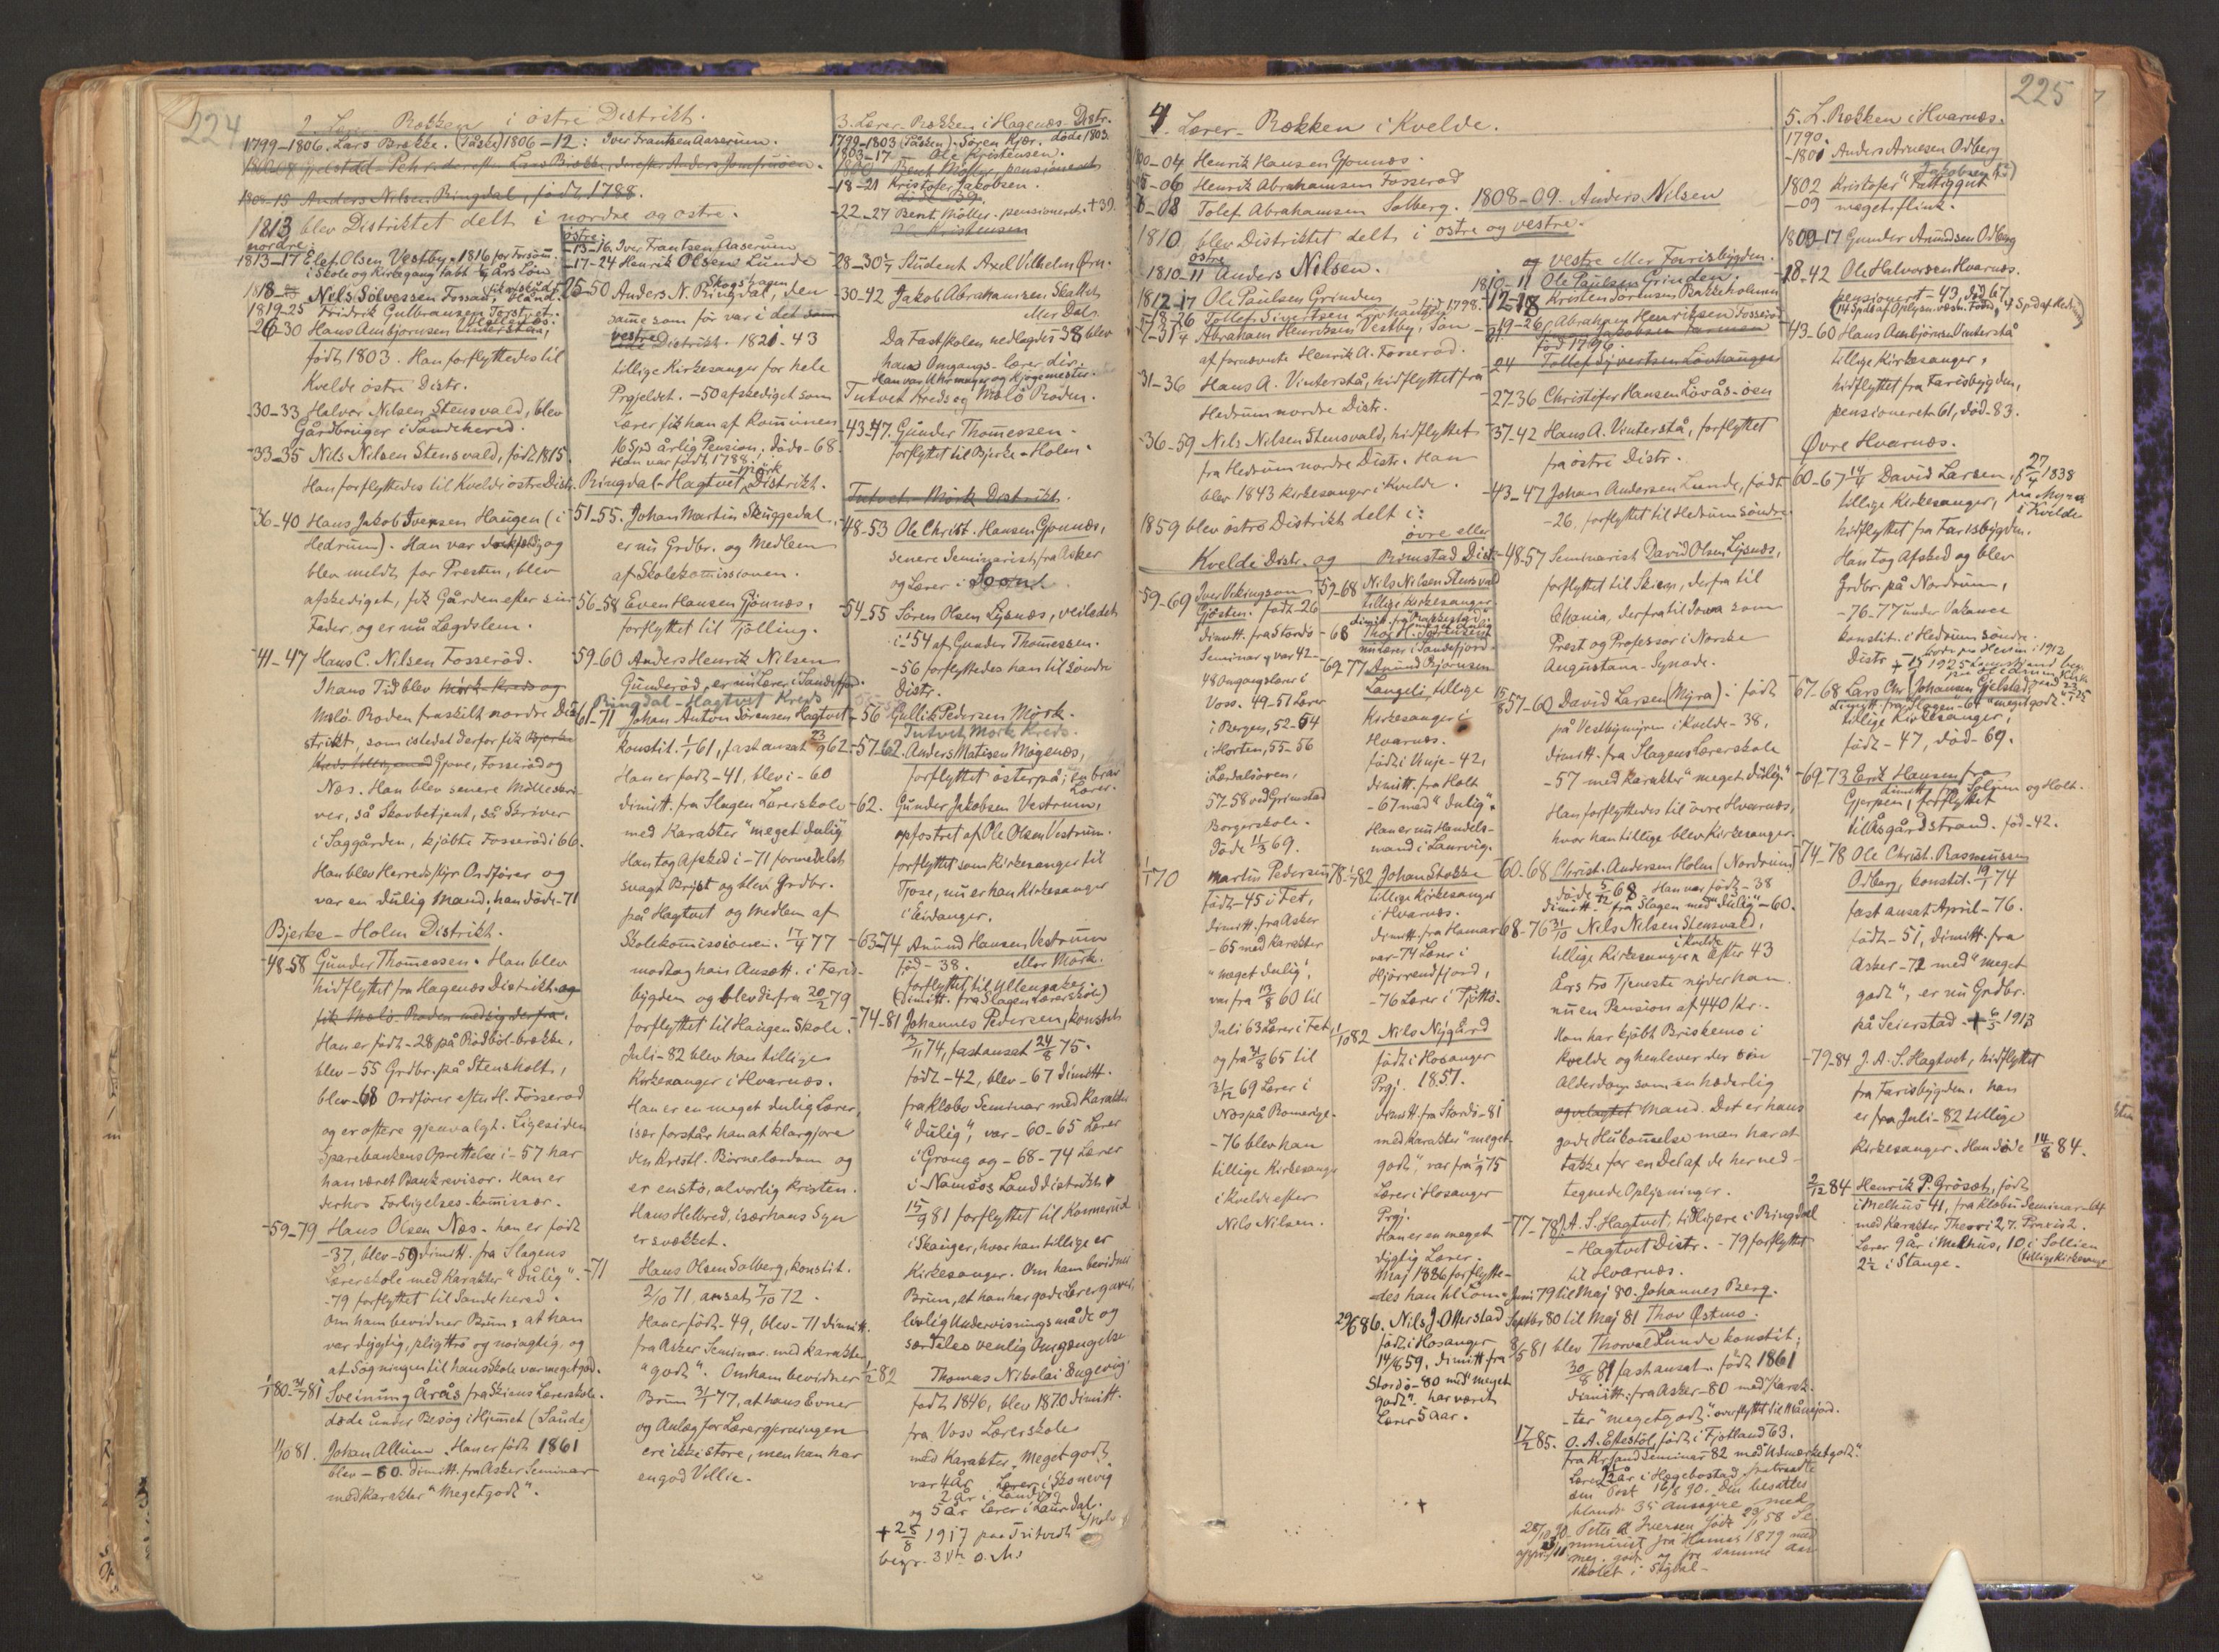 224
2. Lærer-Rækken i østre Distrikt.
1799-1806. Lars Brække. (Påske) 1806-12: Iver Frantsen Aaserum.
1808-15 Anders Nilsen Ringdal, født 1788.
1813 blev Distriktet delt i nordre og østre.
nordre:
1813-17 Elef Olsen Vestby - 1816 for Forsøm.
i Skole og Kirkegang tabt ¼ Års Løn
1818- Nils Sølvessen Fossan,
1819-25 Fridrik Gulbransen
-26-30 Hans Ambjørnsen Vinterstå,
født 1803. Han forflyttedes til
Kvelde østre Distr.
-30-33 Halvor Nilsen Stensvald, blev
Gårdbruger i Sandeherred.
-33-35 Nils Nilsen Stensvald, født 1815.
Han forflyttedes til Kvelde østre Distr.
-36-40 Hans Jakob Iversen Haugen (i
Hedrum). Han var og
blev meldt for Presten, blev
afskediget, fik Gården efter sin
Fader, og er nu Lægdslem.
-41-47 Hans C. Nilsen Fosserød.
I hans Tid blev Mørk-Kreds og
Mølø-Roden fraskilt nordre Di-
strikt, som istedet derfor fik Bjerke
Gjone, Fosserød og
Næs. Han blev senere Mølleskri-
ver, så Skovbetjent, så Skriver
i Saggården, kjøbte Fosserød i 66.
Han blev Herredsstyr. Ordfører og
var en dulig Mand; han døde -71
Bjerke-Holm Distrikt.
-48-58 Gunder Thomessen. Han blev
hidflyttet fra Hagenæs Distrikt og
fik Mølø-Roden med sig derfra.
Han er født -28 på Rødbøl-brække,
blev -55 Grdbr. på Stensholt,
blev -68 Ordfører efter H. Fosserød
og er oftere gjenvalgt. Ligesiden
Sparebankens Oprettelse i -57 har
han været Bankrevisor. Han er
derhos Forligelses-kommissær.
-59-79 Hans Olsen Næs. han er født
-37, blev -59 dimitt. fra Slagens
Lærerskole med Karakter "dulig".
-79 forflyttet til Sandeherred.
Om ham bevidner Bruun, at han
var dygtig, pligttro og nøiagtig, og
at Søgningen til hans Skole var meget god.
1/1 80-31/7 81 Sveinung Årås fra Skiens Lærerskole.
døde under Besøg i Hjemmet (Saude)
1/10 81. Johan Allum. Han er født 1861
blev -80. dimitt. fra Asker Seminar
med Karakter "Meget godt".
østre:
-13-16. Iver Frantsen Aaserum
-17-24 Henrik Olsen Lunde
25-50 Anders N. Ringdal, Skogshagen den
samme som før var i det
vestre Distrikt. 1821-43
tillige Kirkesanger for hele
Prgjeldet. -50 afskediget som
Lærer fik han af Kommunen
16 Spd årlig Pension. Døde -68.
Han var født 1788.
Ringdal-Hagtvet-Mørk Distrikt.
51-55. Johan Martin Skuggedal
er nu Grdbr. og Medlem
af Skolekommissionen.
56-58 Even Hansen Gjønnæs,
forflyttet til Tjølling.
59-60 Anders Henrik Nilsen
Gunderød, er nu Lærer i Sandefjord.
Ringdal-Hagtvet Kreds
61-71 Johan Anton Sørensen Hagtvet
konstit. 1/1 61, fast ansat 23/9 62
Han er født -41, blev i -60
dimitt. fra Slagen Lærerskole
med Karakter "meget dulig"
Han tog Afsked i -71 formedelst
svagt Bryst og blev Grdbr.
på Hagtvet og Medlem af
Skolekommissionen. 17/4 77
modtog han Ansætt. i Farris-
bygden og blev derfra 20/2 79
forflyttet til Haugen Skole.
Juli -82 blev han tillige
Kirkesanger i Hvarnæs.
Han er en meget dulig Lærer,
især forstår han at klargjøre
den Kristl. Børnelærdom og
er en stø, alvorlig Kristen.
Hans Helbred, især hans Syn
er svækket.
-71 Hans Olsen Solberg, konstit.
2/10 71, ansat 7/10 72.
Han er født -49, blev -71 dimitt.
fra Asker Seminar med Karakter
"godt". Om ham bevidner
Bruun 31/1 77, at hans Evner
og Anlæg for Lærergjerningen
ere ikke store, men han har
en god Villie.
3. Lærer-Rækken i Hagenæs-Distr.
1799-1803 (Påsken)-Søren Kjær. døde 1803.
1803-17 Ole Kristensen.
-18-21 Kristofer Jakobsen.
-22-27 Bent Møller. pensioneret. + 39.
Ole Kristensen
28-30 ½ Student Axel Vilhelm Ørn.
-30-42 Jakob Abrahamsen Skallet
eller Dal.
Da Fastskolen nedlagdes -38 blev
han Omgangs-lærer der.
Han var Uhrmager og Kjøgemester.
Tutvet Kreds og Mølø Roden.
-43-47. Gunder Thomessen.
forflyttet til Bjerke-Holm.
Tutvet-Mørk Distrikt.
-48-53 Ole Christ. Hansen Gjønnæs,
senere Seminarist fra Asker
og Lærer i
-54-55 Søren Olsen Lysnæs, veiledet
i 1-54 af Gunder Thomessen.
-56 forflyttedes han til søndre
Distr.
-56 Gullik Pedersen Mørk.
Tutvet Mørk Kreds.
-57-62 Anders Matisen Mogenæs,
forflyttet østerpå; en brav
Lærer.
-62. Gunder Jakobsen Vestrum,
opfostret af Ole Olsen Vestrum.
forflyttet som Kirkesanger til
Tjose, nu er han Kirkesanger
i Eidanger.
-63-74 Anund Hansen Vestrum
fød -38. eller Mørk.
forflyttet til Ullensaker
(dimitt. fra Slagen Lærerskole)
-74-81 Johannes Pedersen, konstit.
3/11 74, fast ansat 24/8 75.
født -42, blev -67 dimitt.
fra Klæbo Seminar med Karakter
"dulig", var -60-65 Lærer
i Grong og -68-74 Lærer
i Namsos Landdistrikt.
15/9 81 forflyttet til Konnerud
i Skouger, hvor han tillige er
Kirkesanger. Om ham bevidner
Bruun, at han har gode Lærergaver,
livlig Undervisningsmåde og
særdeles venlig Omgængelse
1/2 82 Thomas Nikolai Engevig
født 1846, blev 1870 dimitt.
fra Voss Lærerskole
med Karakter Meget godt
var 4 år Lærer i Skonevig
2 år i
og 5 år Lærer i Laurdal.
+ 25/8 1917 paa Tutvedt Skole
begr. 31/8 s. M.
225
4. Lærer-Rækken i Kvelde.
1800-04 Henrik Hansen Gjønnæs.
5-06 Henrik Abrahamsen Fosserød
6-08 Tolef Abrahamsen Solberg. 1808-09. Anders Nilsen
1810 blev Distriktet delt i østre og vestre.
østre
1810-11 Anders Nilsen.
1812-17 Ole Paulsen Grinden
-18-26 Tollef Sivertsen Løvhaugen, fød 1798.
-7-31 Abraham Henriksen Vestby, Søn
af fornævnte Henrik A. Fosserød.
-31-36 Hans A. Vinterstå, hidflyttet fra
Hedrum nordre Distr.
-36-59 Nils Nilsen Stensvald, hidflyttet
fra Hedrum nordre Distr. Han
blev 1843 Kirkesanger i Kvelde.
1859 blev østre Distrikt delt i:
Kvelde Distr. og øvre eller Rimstad Dist.
-59-69 Iver Vekingson
Gjøsten. født -26
dimitt. fra Stords
Seminar, var 42-
48 Omgangslærer i
Voss. 49-51 Lærer
i Bergen, 52-54
i Horten, 55-56
i Lærdalsøren,
57-58 ved Grimstad
Borgerskole.
Døde 1/3 69.
1/1 70 Martin Pedersen
født -45 i Fet,
dimitt. fra Asker
-65 med Karakter
"meget dulig",
var fra 13/8 60 til
Juli 63 Lærer i Fet,
og fra 21/8 65 til
31/12 69 Lærer i
Næs på Romerige.
-76 blev han
tillige Kirkesanger
i Kvelde efter
Nils Nilsen.
59-68 Nils Nilsen Stensvald
tillige Kirkesanger.
-68 Thor H. Sørensen
nu Lærer i Sandefjord
69-77 Anund Bjørnsen
Langeli, tillige
Kirkesanger i
Hvarnæs.
født i Vinje -42,
dimitt. fra Holt
-67 med "dulig".
Han er nu Handels-
mand i Laurvig.
78-1/1 82 Johan Stokke
tillige Kirkesanger
i Hvarnæs.
dimitt. fra Hamar
var -74 Lærer i
Hjørrendfjord,
-76 Lærer i Tjøttø.
1/10 82 Nils Nygård
født i Hosanger
Prgj. 1857.
dimitt. fra Stordø -81
med Karakter "meget
godt", var fra 1/9 75
Lærer i Hosanger
Prgj.
Han er en meget
dygtig Lærer.
Maj 1886 forflytte-
des han til Lom.
29/6 86. Nils J. Otterstad
født i Hosanger
14/8 59, dimitt. fra
Stordø -80 med "meget
godt". har været
Lærer 5 Aar.
og vestre eller Farrisbygden.
1810-11 Ole Paulsen Grinden.
-12-18 Kristen Sørensen Bakkeholmen
-19-26 Abraham Henriksen Fosserød
Født 1796.
24 Tollef Sivertsen Løvhaugen
27-36 Christofer Hansen Løvås-øen
-37-42 Hans A. Vinterstå, forflyttet
fra østre Distr.
-43-47 Johan Andersen Lunde, født
-26, forflyttet til Hedrum søndre.
-48-57 Seminarist David Olsen Lysnæs,
forflyttet til Skien, derfra til
Chania, derfra til Iowa som
Prest og Professor i Norske
Augustana-Synode.
15/8 57-60 David Larsen (Myra) født
på Vestbymyren i Kvelde -38,
dimitt. fra Slagens Lærerskole
-57 med Karakter "meget dulig"
Han forflyttedes til øvre Hvarnæs,
hvor han tillige blev Kirkesanger.
-60-68 Christ. Andersen Holm (Nordrum)
døde 5/12 68. Han var født -38
dimitt. fra Slagen med "dulig" -60.
68-76 31/10 Nils Nilsen Stensvald,
tillige Kirkesanger i Kvelde. Efter 43
Års tro Tjeneste nyder han
nu en Pension af 440 Kr.
Han har kjøbt Briskemo i
Kvelde og henlever der sin
Alderdom som en hæderlig
og elagtet Mand. Det er hans
gode Hukommelse man har at
takke for en Del af de her ned-
tegnede Oplysninger.
-77-78 J. A. S. Hagtvet, tidligere i Ringdal
-Hagtvet Distr. -79 forflyttet
til Hvarnæs.
Juni 79 til Maj 80. Johannes Berg.
Septbr 80 til Maj 81 Thov Østmo.
8/5 81 blev Thorvald Lunde konstit;
30/8 81 fast ansat. født 1861
dimitt. fra Asker -80 med Karak-
ter "meget godt". overflyttet til
17/2 85. O. A. Eftestøl, født i Fjotland 63.
fra Krsand Seminar 82 med Udmærket godt.
Lærer 2 år i Hægebostad fratraadte
den Post 16/8 90. Den besattes
blandt 35 Ansøgere med
28/10 90 Peter A. Iversen født 29/1 58 Se
minarist fra Hamar 1879 med
meg. godt og fra samme Aar
skolet i Sigdal
5. L. Rækken i Hvarnæs.
1790
-1801 Anders Arnesen Odberg
1802 Kristofer Jakobsen Fattiggut
-09 meget flink.
1809-17 Gunder Amundsen Odberg
-18-42 Ole Halvorsen Hvarnæs.
pensioneret -43, død 67
-43-60 Hans Ambjørnsen Vinterstå
tillige Kirkesanger,
hidflyttet fra Farisbygden,
pensioneret 61, død -83.
Øvre Hvarnæs.
60-67 14/4 David Larsen, f. 27/4 1838
på Myra
i Kvelde
tillige Kirkesanger,
hidflyttet fra Farisbygden.
Han tog Afsked og blev
Grdbr. på Nordrum,
-76-77 under Vakance
konstit. i Hedrum søndre
Distr.
67-68 Lars Chr. Johansen Gjelstad
dimitt. fra Slagen -64 "meget godt".
tillige Kirkesanger,
født -47, død -69.
-69-73 Erik Hansen fra
Gjerpen, forflyttet
til Åsgårdstrand. fød -42.
-74-78 Ole Christ. Rasmussen
Odberg, konstit. 19/1 74
fast ansat April -76.
født -51, dimitt. fra
Asker -72 med "meget
godt", er nu Grdbr.
på Seierstad. + 6/5 1913
-79-84 J. A. S. Hagtvet, hidflyttet
fra Farisbygden. han
er fra Juli -82 tillige
Kirkesanger. Han døde 14/8 84.
2/12 84 Henrik P. Grøseth, født
i Melhus 41, fra Klæbu Seminar -64
med Karakter Theori 2, Praxis 2.
Lærer 9 år i Melhus, 10 i Sollien
2½ i Stange. (tillige Kirkesanger)